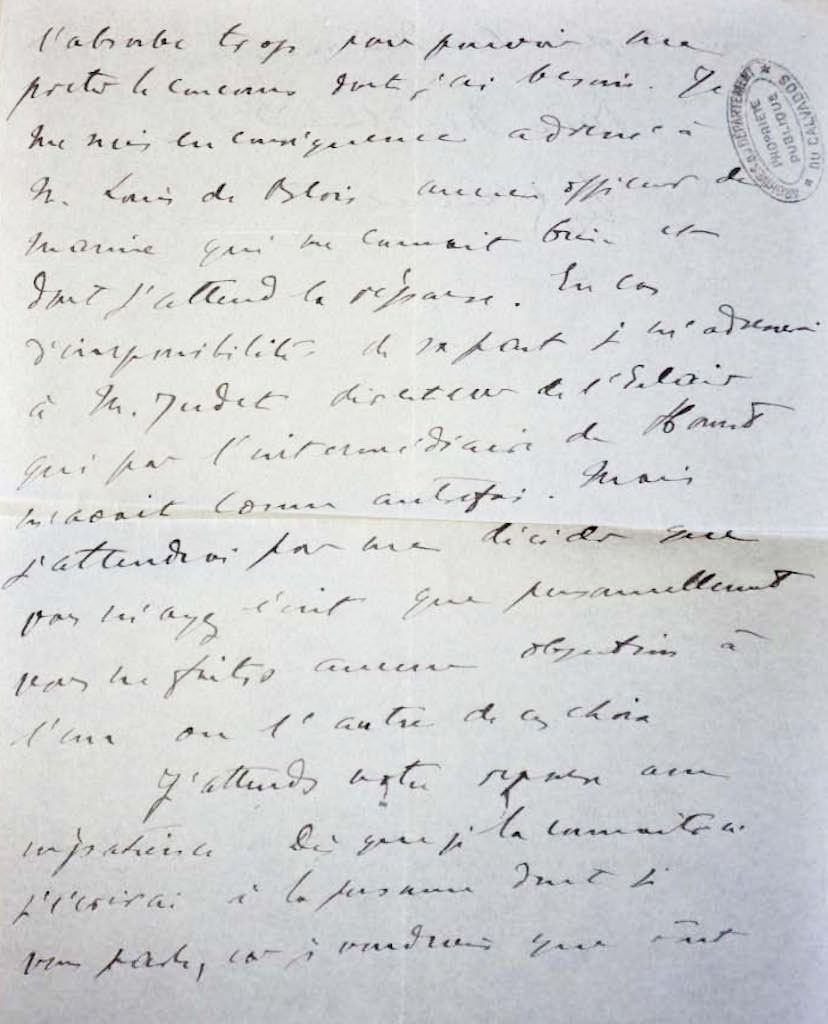 l'absorbe trop pour pouvoir me
prêter le concours dont j'ai besoin. Je
me suis en conséquence adressé à
M. Louis de Blois ancien officier de
marine qui me connait bien et
dont j'attend la réponse. En cas
d'impossibilité de sa part je m'adresserai
à M. Judet directeur de l'Eclair
qui par l'intermédiaire de
m'avait connu autrefois. Mais
j'attendrai pour me décider que
vous m'ayez écrit que personnellement
vous ne faites aucune objection à
l'un ou l'autre de ces choix
J'attends votre réponse avec
impatience Dès que je la connaitrai
j'écrirai à la personne dont je
vous parle, car je voudrais que
ARCHIVES DU DÉPARTEMENT
DU CALVADOS
PROPRIÉTÉ
PUBLIQUE